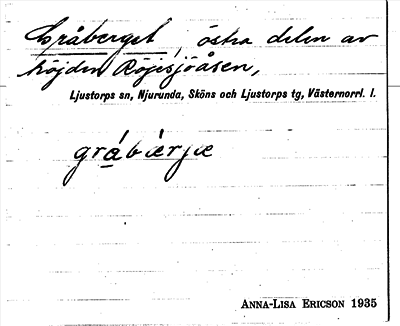 Gråberget, östra delen av
höjden Röjesjöåsen,
Ljustorps sn, Njurunda, Sköns och Ljustorps tg, Västernorrl. l.
grábærjæ
ANNA-LISA ERICSON 1935